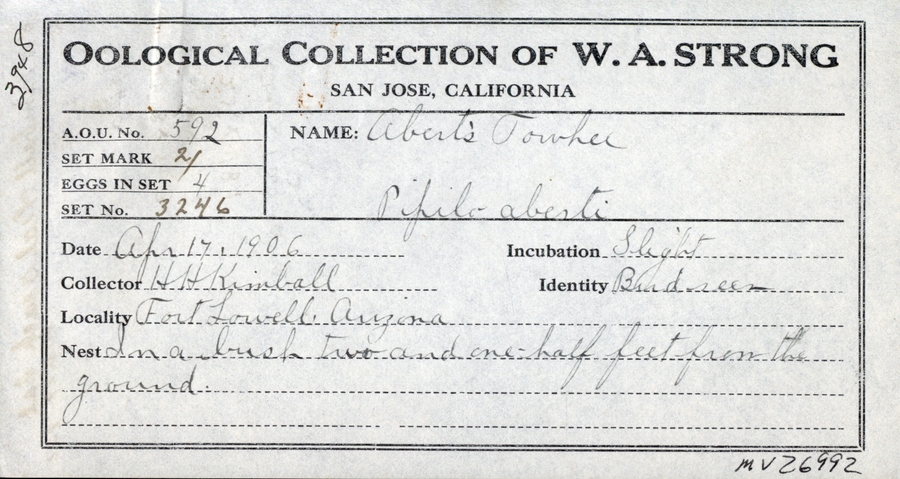 3948
OOLOGICAL COLLECTION OF W. A. STRONG
SAN JOSE, CALIFORNIA
A.O.U. No. 592
SET MARK 2/
EGGS IN SET 4
SET No. 3246
NAME: Abert's Towhee
Pipilo aberti
Date Apr 17, 1906
Incubation Slight
Collector H H Kimball
Identity Bird seen
Locality Fort Lowell. Arizona
Nest In a bush two and one-half feet from the
ground.
MV26992